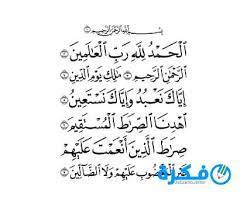 بِسْمِ اللَّهِ الرَّحْمَٰنِ الرَّحِيمِ ١
الْحَمْدُ لِلَّهِ رَبِّ الْعَالَمِينَ ٢
الرَّحْمَٰنِ الرَّحِيمِ ٣ مَالِكِ يَوْمِ الدِّينِ ٤
إِيَّاكَ نَعْبُدُ وَإِيَّاكَ نَسْتَعِينُ ٥
اهْدِنَا الصِّرَاطَ الْمُسْتَقِيمَ ٦
صِرَاطَ الَّذِينَ أَنْعَمْتَ عَلَيْهِمْ
غَيْرِ الْمَغْضُوبِ عَلَيْهِمْ وَلَا الضَّالِّينَ ٧
فكرة